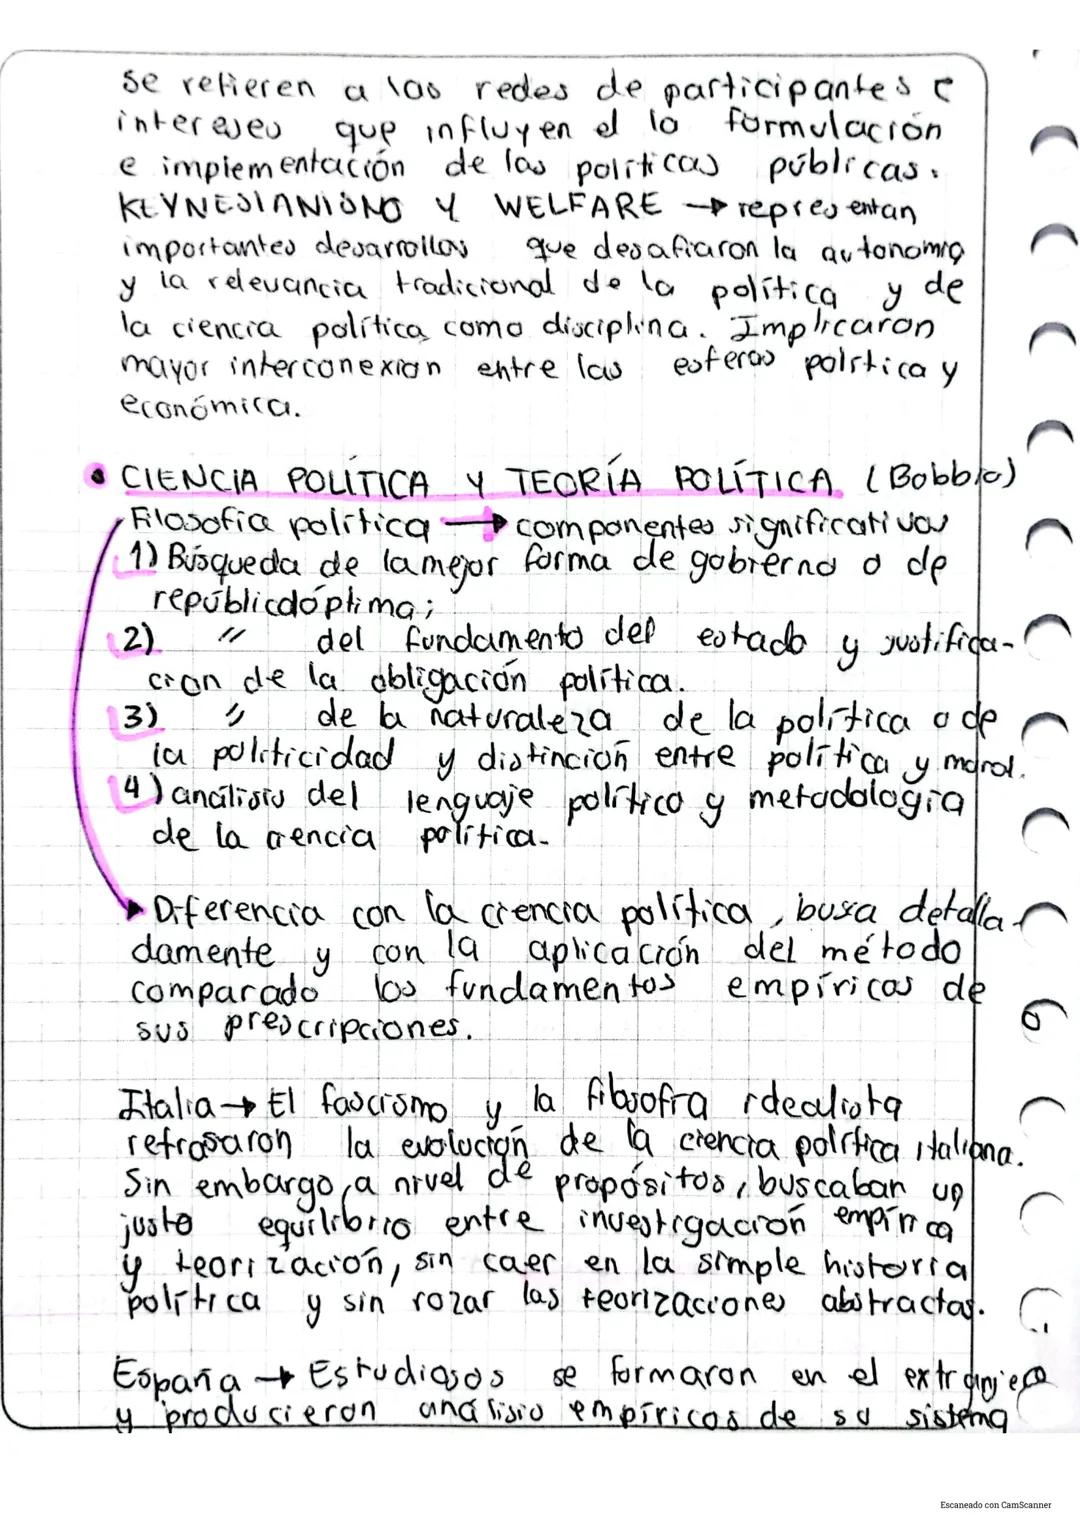 se refieren a las redes de participantes e
intereses que influyen el la formulación
e implementación de las políticas públicas.
KEYNESIANISMO Y WELFARE → representan
importantes desarrollos que desafiaron la autonomía
y la relevancia tradicional de la política y de
la ciencia política como disciplina. Implicaron
mayor interconexión entre las esferas política y
económica.
• CIENCIA POLÍTICA Y TEORÍA POLÍTICA. (Bobbio)
Filosofía política → componentes significativos
1) Búsqueda de la mejor forma de gobierno o de
república óptima;
2) " del fundamento del estado y justifica-
ción de la obligación política.
3) " de la naturaleza de la política o de
la politicidad y distinción entre política y moral.
4) análisis del lenguaje político y metodología
de la ciencia política.
Diferencia con la ciencia política, busca detalla-
damente y con la aplicación del método
comparado los fundamentos empíricos de
sus prescripciones.
Italia → El fascismo y la filosofía idealista
retrasaron la evolución de la ciencia política italiana.
Sin embargo, a nivel de propósitos, buscaban un
justo equilibrio entre investigación empírica
y teorización, sin caer en la simple historia
política y sin rozar las teorizaciones abstractas.
España → Estudiosos se formaron en el extranjero
y producieron análisis empíricos de su sistema
Escaneado con CamScanner